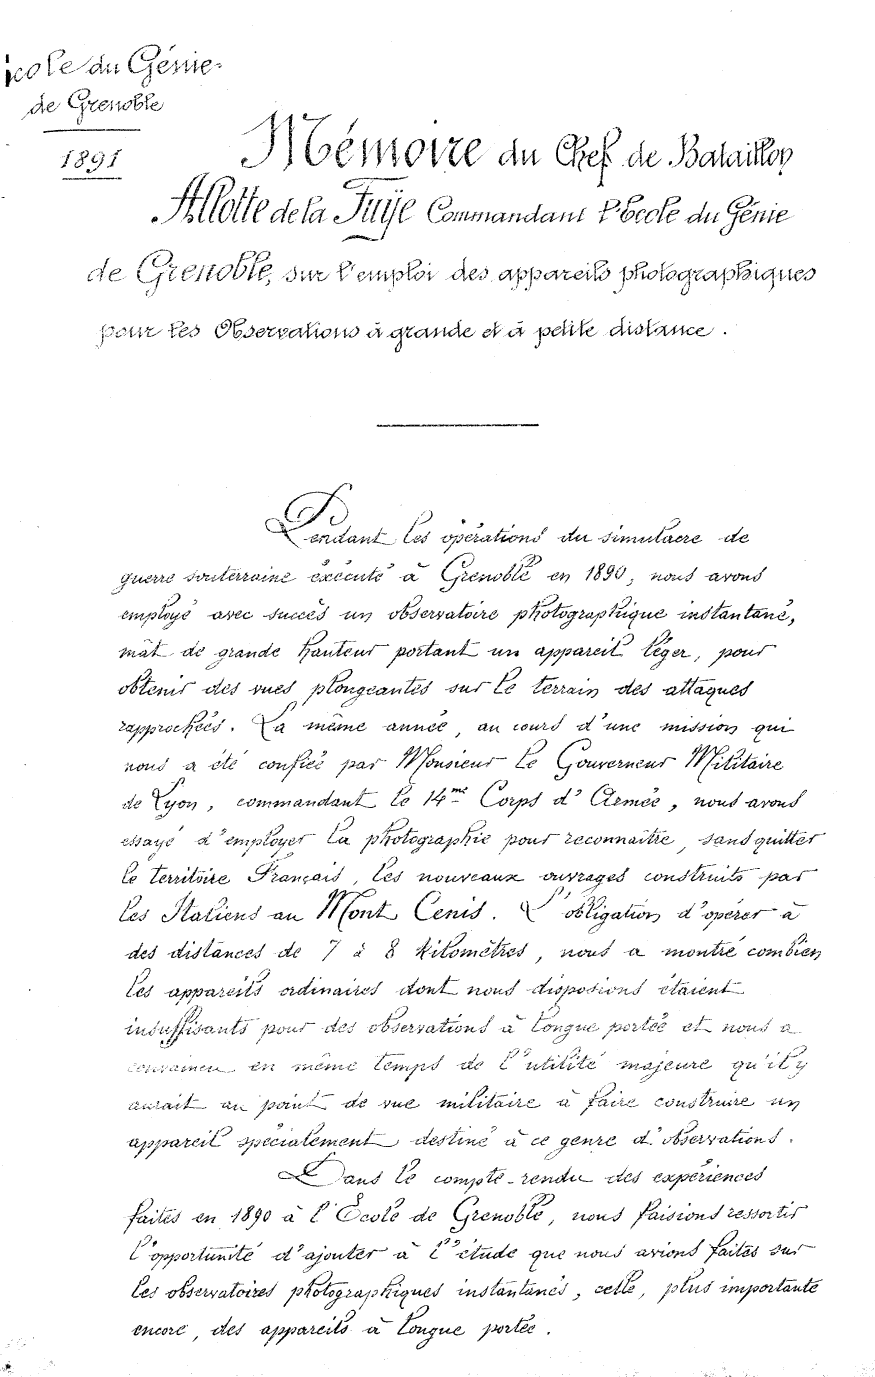 Ecole du Génie
de Grenoble
1891
Mémoire du Chef de Bataillon
Allotte de la Fuÿe Commandant l'Ecole du Génie
de Grenoble, sur l'emploi des appareils photographiques
pour les Observations à grande et à petite distance.
Pendant les opérations du simulacre de
guerre souterraine éxécuté à Grenoble en 1890, nous avons
employé avec succès un observatoire photographique instantané,
mât de grande hauteur portant un appareil léger, pour
obtenir des vues plongeantes sur le terrain des attaques
rapprochées. La même année, au cours d'une mission qui
nous a été confiée par Monsieur le Gouverneur Militaire
de Lyon, commandant le 14me Corps d'Armée, nous avons
essayé d'employer la photographie pour reconnaître, sans quitter
le territoire Français, les nouveaux ouvrages construits par
les Italiens au Mont Cenis. L'obligation d'opérer à
des distances de 7 à 8 kilomètres, nous a montré combien
les appareils ordinaires dont nous disposions étaient
insuffisants pour des observations à longue portée et nous a
convaincu en même temps de l'utilité majeure qu'il y
aurait au point de vue militaire à faire construire un
appareil spécialement destiné à ce genre d'observations.
Dans le compte-rendu des expériences
faites en 1890 à l'École de Grenoble, nous faisions ressortir
l'opportunité d'ajouter à l'étude que nous avions faites sur
les observatoires photographiques instantanés, celle, plus importante
encore, des appareils à longue portée.